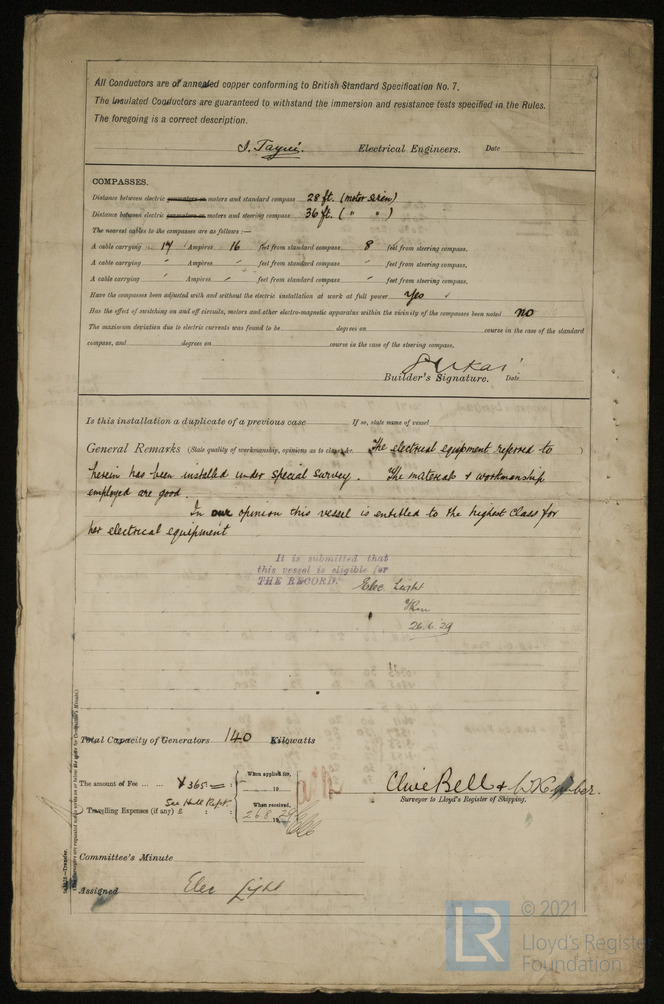 All Conductors are of annealed copper conforming to British Standard Specification No. 7.
The Insulated Conductors are guaranteed to withstand the immersion and resistance tests specified in the Rules.
The foregoing is a correct description.
Electrical Engineers. Date
COMPASSES.
Distance between electric generators or motors and standard compass 28 ft. (motor siren)
Distance between electric generators or motors and steering compass 36 ft. ( " " )
The nearest cables to the compasses are as follows :—
A cable carrying 17 Ampères 16 feet from standard compass 8 feet from steering compass.
A cable carrying " Ampères " feet from standard compass " feet from steering compass.
A cable carrying " Ampères " feet from standard compass " feet from steering compass.
Have the compasses been adjusted with and without the electric installation at work at full power Yes
Has the effect of switching on and off circuits, motors and other electro-magnetic apparatus within the vicinity of the compasses been noted no
The maximum deviation due to electric currents was found to be degrees on course in the case of the standard
compass, and degrees on course in the case of the steering compass.
Builder's Signature. Date
Is this installation a duplicate of a previous case If so, state name of vessel
General Remarks (State quality of workmanship, opinions as to class, &c. The electrical equipment referred to )
herein has been installed under special survey. The materials & workmanship
employed are good.
In our opinion this vessel is entitled to the highest Class for
her electrical equipment
It is submitted that
this vessel is eligible for
THE RECORD. Elec Light
26.6.29
Total Capacity of Generators 140 Kilowatts
The amount of Fee ... ... ¥365.= When applied for, 19
See Hull Rept.
Travelling Expenses (if any) £ : : When received, 26.8.29
Clive Bell &
Surveyor to Lloyd's Register of Shipping.
Committee's Minute
Assigned Elec Light
© 2021
LR Lloyd's Register
Foundation